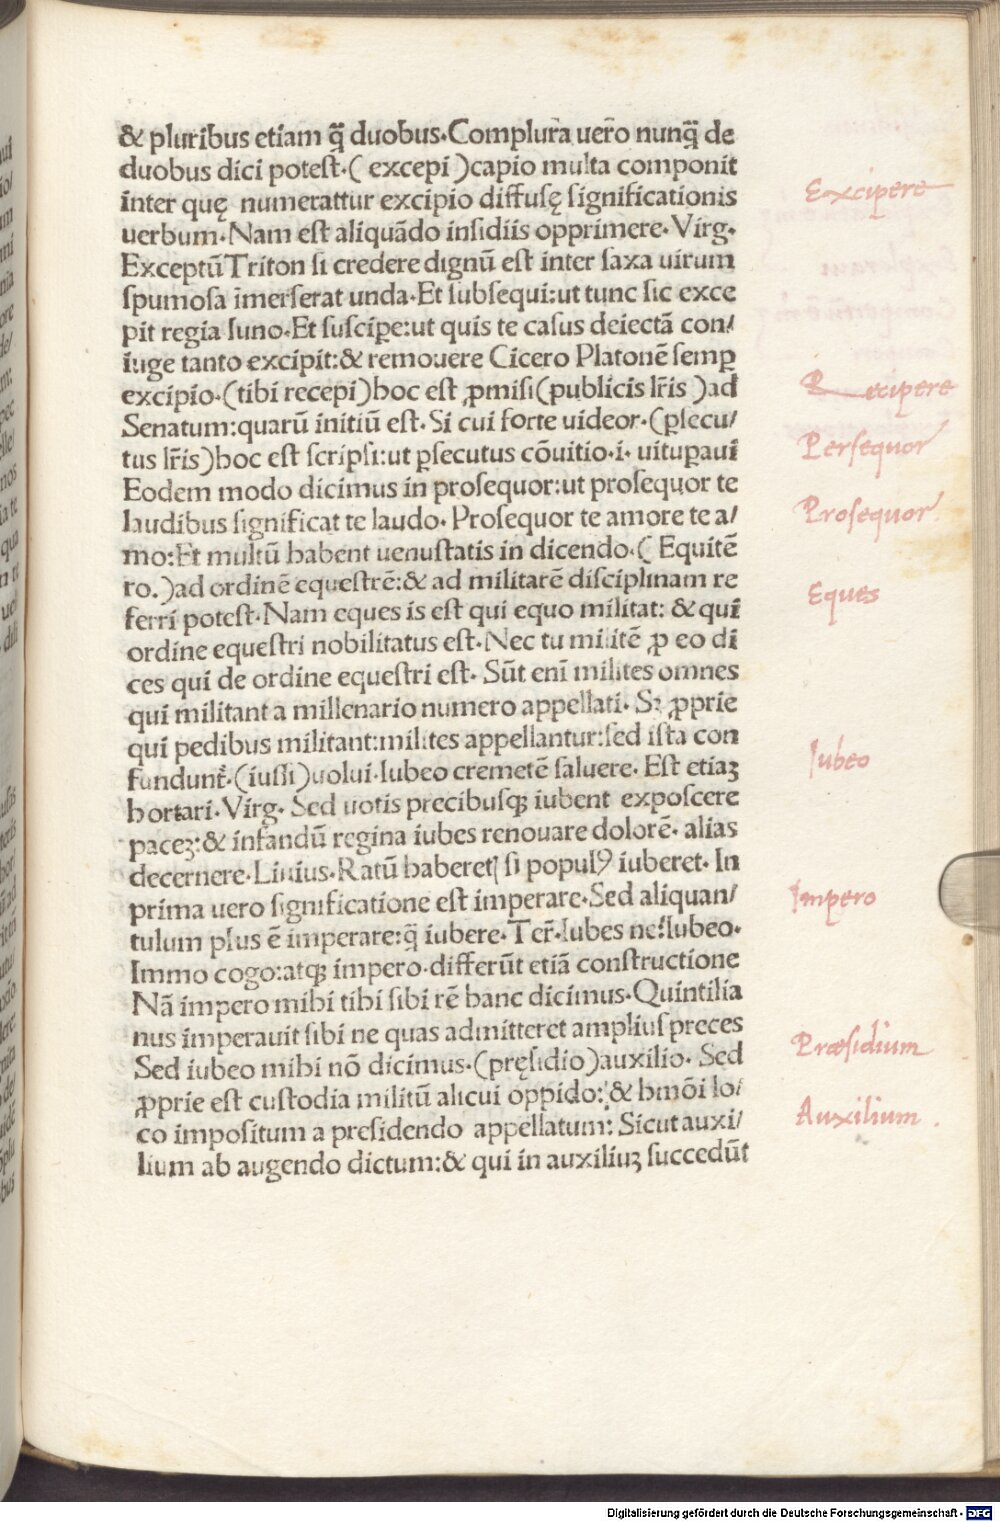 & pluribus etiam q̃ duobus.Complura uero nunq̃ de
duobus dici potest.( excepi )capio multa componit
inter quę numerattur excipio diffusę significationis
uerbum.Nam est aliquādo insidiis opprimere.Virg.
Exceptū Triton si credere dignū est inter saxa uirum
spumosa imerserat unda.Et subsequi:ut tunc sic exce
pit regia Iuno.Et suscipe:ut quis te casus deiectā con/
iuge tanto excipit:& remouere Cicero Platonē semꝑ
excipio.(tibi recepi)hoc est ꝓmisi(publicis lr̃is )ad
Senatum:quarū initiū est.Si cui forte uideor.(ꝑsecu/
tus lr̃is)hoc est scripsi:ut ꝑsecutus cōuitio.i.uituꝑaui
Eodem modo dicimus in prosequor:ut prosequor te
laudibus significat te laudo.Prosequor te amore te a/
mo:Et multū habent uenustatis in dicendo.( Equitē
ro.)ad ordinē equestrē:& ad militarē disciplinam re
ferri potest.Nam eques is est qui equo militat: & qui
ordine equestri nobilitatus est.Nec tu militē ꝓ eo di
ces qui de ordine equestri est. Sūt enī milites omnes
qui militant a millenario numero appellati. Sꝫ ꝓprie
qui pedibus militant:milites appellantur:sed ista con
fundunt̃.(iussi)uolui.Iubeo cremetē saluere. Est etiaꝫ
hortari.Virg. Sed uotis precibusqꝫ iubent exposcere
paceꝫ:& infandū regina iubes renouare dolorē. alias
decernere.Liuius.Ratū haberet si populꝰ iuberet. In
prima uero significatione est imperare.Sed aliquan/
tulum plus ē imperare:q̃ iubere.Ter̃.Iubes ne?Iubeo.
Immo cogo:atqꝫ impero.differūt etiā constructione
Nā impero mihi tibi sibi rē hanc dicimus.Quintilia
nus imperauit sibi ne quas admitteret amplius preces
Sed iubeo mihi nō dicimus.(pręsidio)auxilio. Sed
ꝓprie est custodia militū alicui oppido: & hmōi lo/
co impositum a presidendo appellatum: Sicut auxi/
lium ab augendo dictum:& qui in auxiliuꝫ succedūt
Excipere
Recipere
Persequor
Prosequor
Eques
Iubeo
Impero
Præsidium
Auxilium
Digitalisierung gefördert durch die Deutsche Forschungsgemeinschaft - DFG